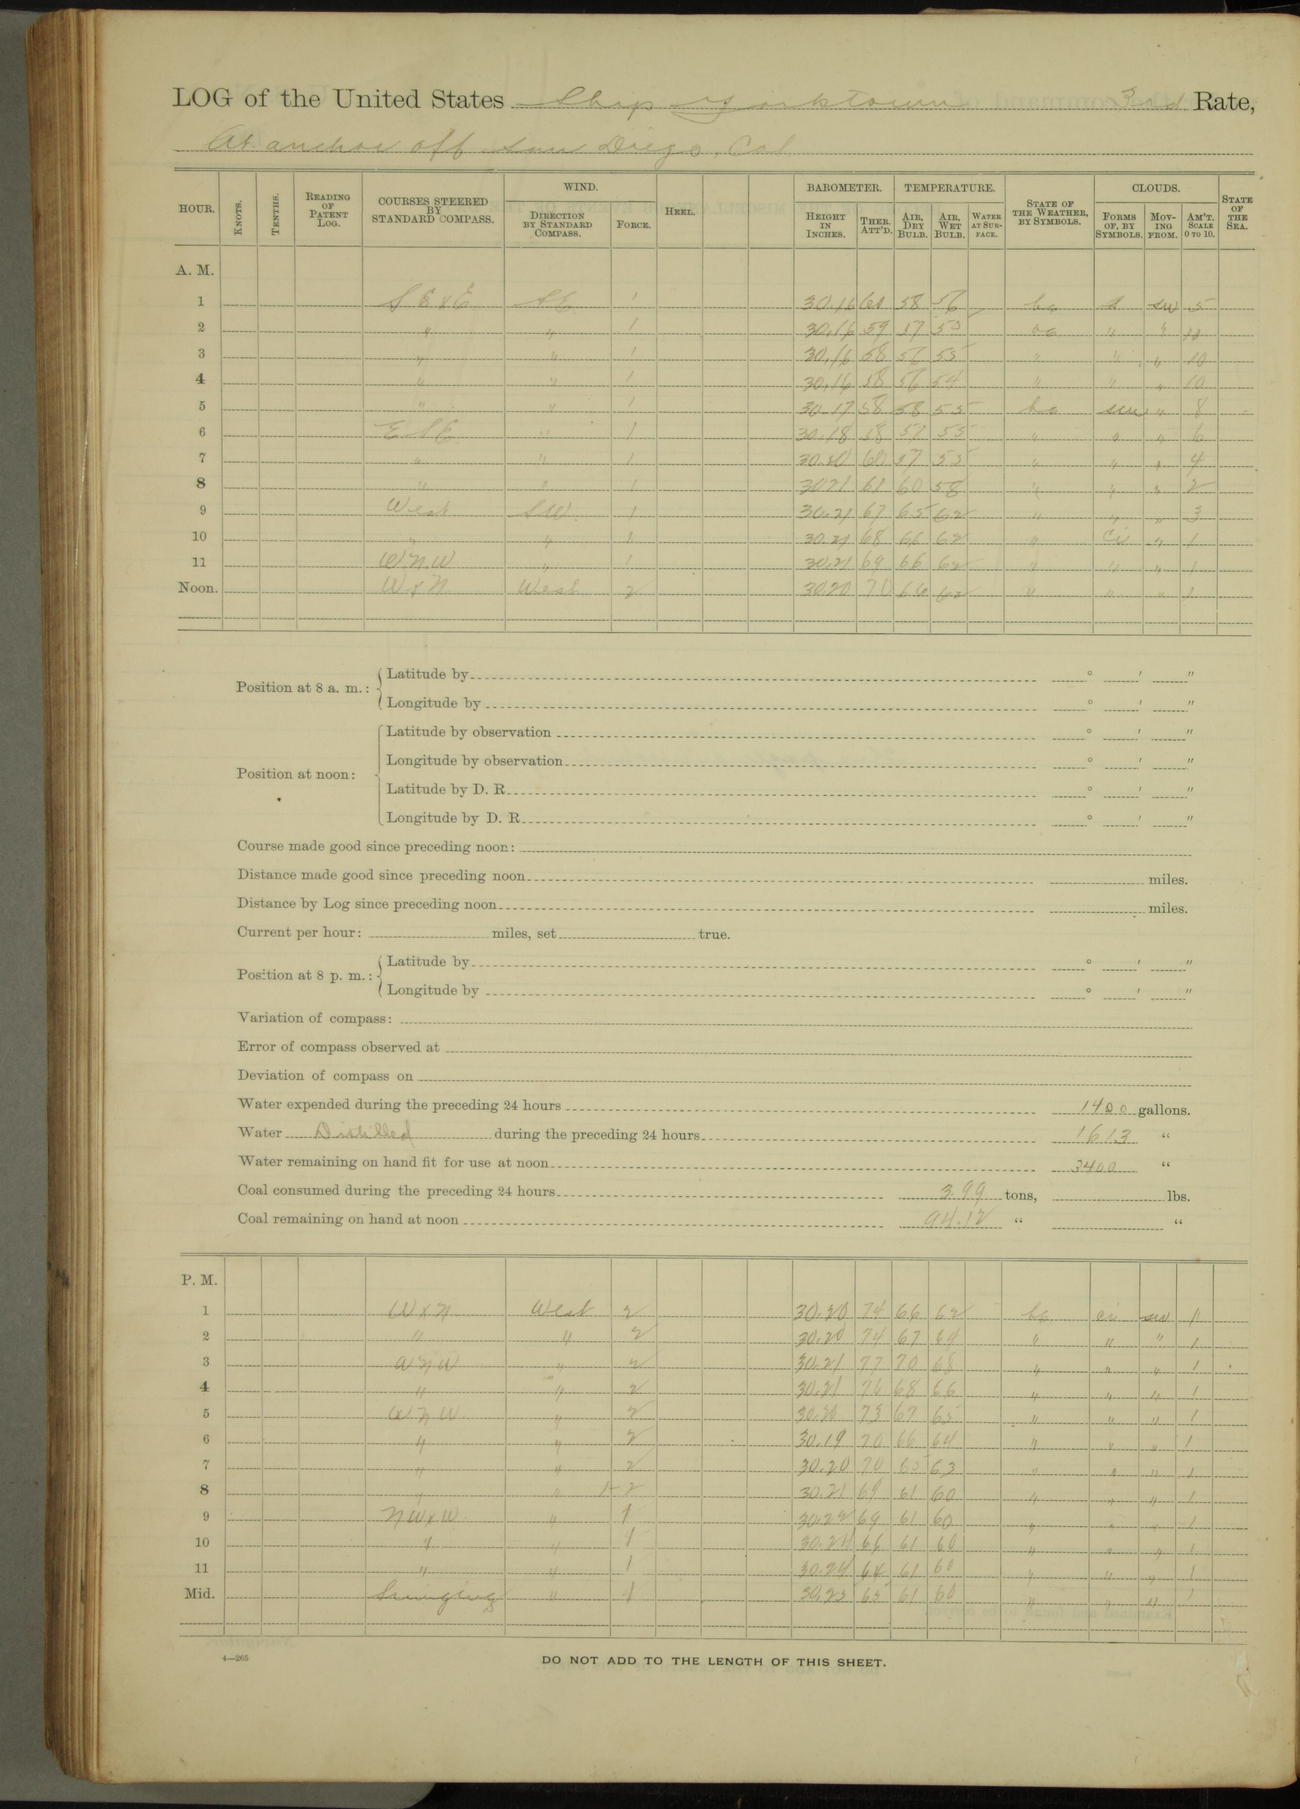 LOG of the United States Ship Yorktown 3rd Rate,
At anchor off San Diego, Cal
HOUR. KNOTS. TENTHS. READING OF PATENT LOG. COURSES STEERED BY STANDARD COMPASS. WIND. DIRECTION BY STANDARD COMPASS. FORCE. HEEL. BAROMETER. HEIGHT IN INCHES. THER. ATT'D. TEMPERATURE. AIR, DRY BULB. AIR, WET BULB. WATER AT SURFACE. STATE OF THE WEATHER, BY SYMBOLS. CLOUDS. FORMS OF, BY SYMBOLS. MOVING FROM. AM'T. SCALE 0 TO 10. STATE OF THE SEA.
A. M.
1 SExE SE 1 30.16 60 58 56 s SW 5
2 " " 1 30.16 59 57 55 " " 10
3 " " 1 30.16 58 56 55 " " " 10
4 " " 1 30.16 58 56 54 " " " 10
5 " " 1 30.17 58 58 55 " 8
6 ESE " 1 30.18 58 57 55 " " " 6
7 " " 1 30.20 60 57 55 " " " 4
8 " " 1 30.21 61 60 58 " " " 2
9 West SW 1 30.21 67 65 62 " " " 3
10 " " 1 30.21 68 66 62 " Ci " 1
11 WNW " 1 30.21 69 66 62 " " " 1
Noon. WxN West 2 30.20 70 66 62 " " " 1
Position at 8 a. m.: Latitude by ° ' "
Longitude by ° ' "
Position at noon: Latitude by observation ° ' "
Longitude by observation ° ' "
Latitude by D. R. ° ' "
Longitude by D. R. ° ' "
Course made good since preceding noon:
Distance made good since preceding noon miles.
Distance by Log since preceding noon miles.
Current per hour: miles, set true.
Position at 8 p. m.: Latitude by ° ' "
Longitude by ° ' "
Variation of compass:
Error of compass observed at
Deviation of compass on
Water expended during the preceding 24 hours 1400 gallons.
Water Distilled during the preceding 24 hours 1613 "
Water remaining on hand fit for use at noon 3400 "
Coal consumed during the preceding 24 hours 3.99 tons, lbs.
Coal remaining on hand at noon 94.12 " "
P. M.
1 WxN West 2 30.20 74 66 62 bc ci SW 1
2 " " 2 30.20 74 67 64 " " " 1
3 WNW " 2 30.21 77 70 68 " " " 1
4 " " 2 30.21 76 68 66 " " " 1
5 WNW " 2 30.20 73 67 65 " " " 1
6 " " 2 30.19 70 66 64 " " " 1
7 " " 2 30.20 70 65 63 " " " 1
8 " " 1-2 30.21 69 61 60 " " " 1
9 NWxW " 1 30.22 69 61 60 " " " 1
10 " " 1 30.24 66 61 60 " " " 1
11 " " 1 30.24 64 61 60 " " " 1
Mid. Swinging " 1 30.23 65 61 60 " " " 1
4—265
DO NOT ADD TO THE LENGTH OF THIS SHEET.